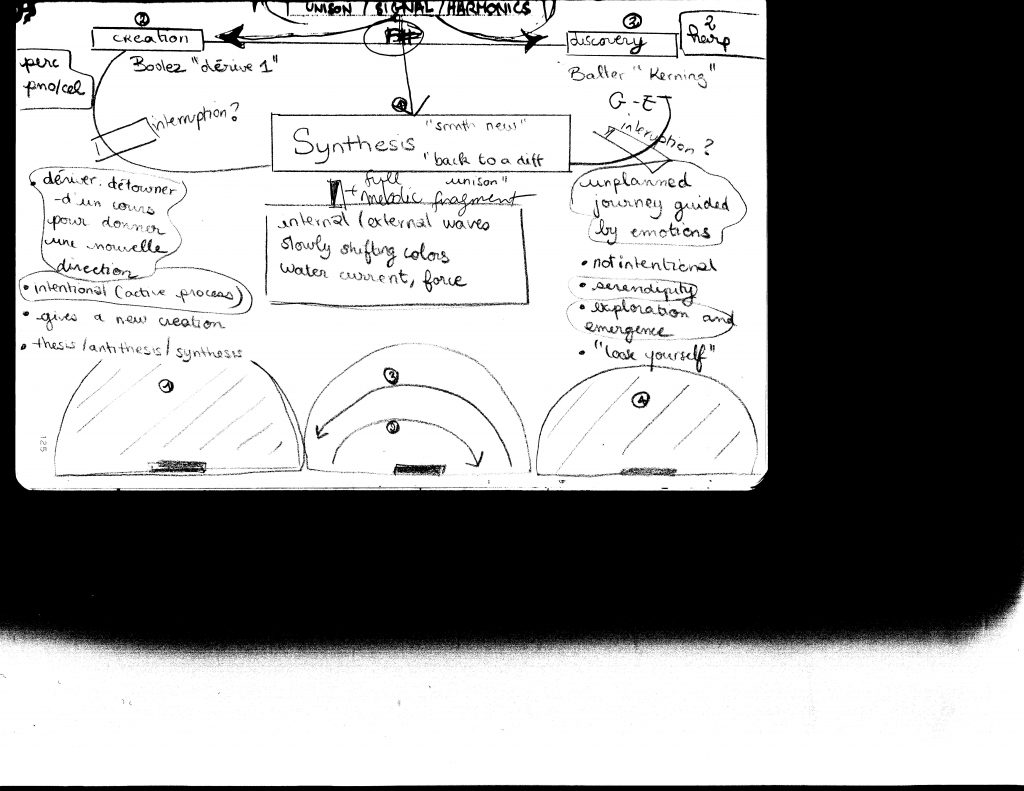 UNISON / SIGNAL / HARMONICS
②
creation
③
discovery
2
harp
perc
pno/cel
Boulez "dérive 1"
Baller "Kerning"
G - E
interruption?
interruption?
④
Synthesis
"smth new"
"back to a diff
unison"
+ full
melodic fragment
internal / external waves
slowly shifting colors
water current, force
• dériver. détourner
- d'un cours
pour donner
une nouvelle
direction
• intentional (active process)
• gives a new creation
• thesis / antithesis / synthesis
unplanned
journey guided
by emotions
• not intentional
• serendipity
• exploration and
emergence
• "lose yourself"
①
③
②
④
125